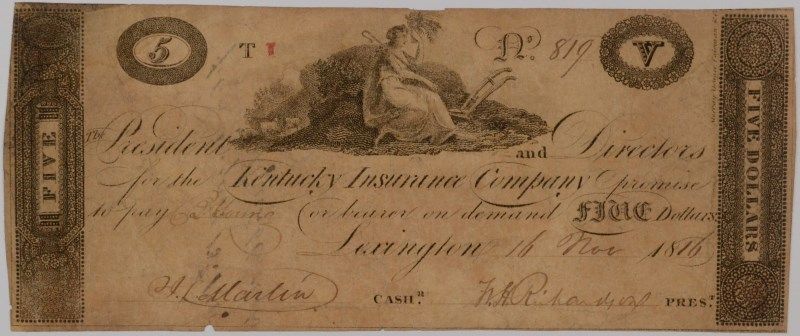 5 T No. 819 V
The President and Directors
for the Kentucky Insurance Company promise
to pay or bearer on demand FIVE Dollars
Lexington 16 Nov 1816
Martin CASHR. W.H. Richardson PREST.
FIVE
FIVE DOLLARS